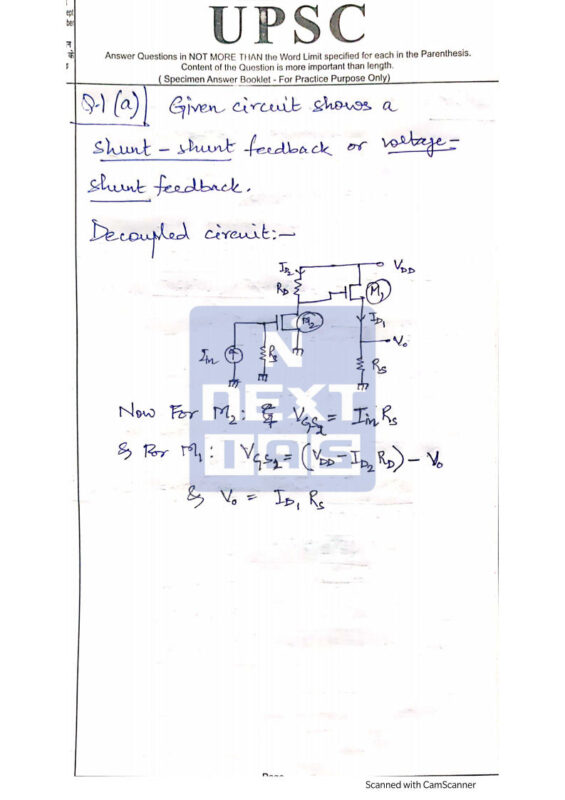 UPSC
Answer Questions in NOT MORE THAN the Word Limit specified for each in the Parenthesis.
Content of the Question is more important than length.
( Specimen Answer Booklet - For Practice Purpose Only)
Q.1 (a) Given circuit shows a
shunt - shunt feedback or voltage-
shunt feedback.
Decoupled circuit:-
I_D2
V_DD
R_D
M1
M2
I_D1
V_o
I_in
R_S
R_S
N
NEXT
IAS
Now For M2: V_GS2 = I_in R_S
& For M1: V_GS2 = (V_DD - I_D2 R_D) - V_o
& V_o = I_D1 R_S
Scanned with CamScanner